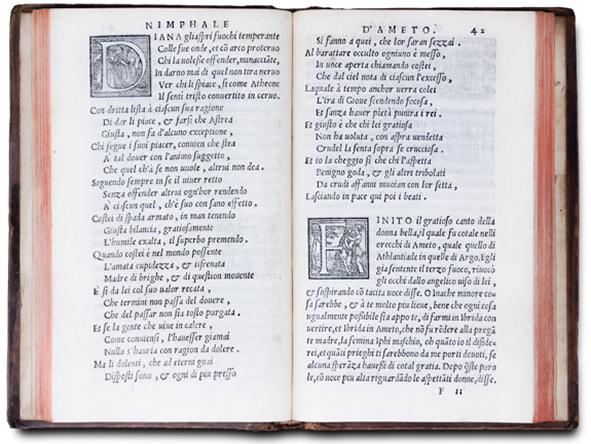 NIMPHALE
DIANA gli aspri fuochi temperante
Colle sue onde, et cō arco proteruo
Chi la uolesse offender, minacciāte,
In darno mai di quel non tira neruo
Ver chi li spiace, si come Atheone
Il sentì tristo conuertito in ceruo.
Con dritta lista à ciascun sua ragione
Di dar li piace, & farsi che Astrea
Giusta, non fa d'alcuno exceptione,
Chi segue i suoi piacer, conuien che stea
A tal douer con l'animo suggetto,
Che quel ch'à se non uuole, altrui non dea.
Seguendo sempre in se il uiuer retto
Senza offender altrui ogn'hor rendendo
A ciascun quel, ch'è suo con sano effetto.
Costei di spada armato, in man tenendo
Giusta bilancia, gratiosamente
L'humile exalta, il superbo premendo.
Quando costei è nel mondo possente
L'amata cupidezza, & isfrenata
Madre di brighe, & di question mouente
E si da lei col suo ualor recata,
Che termini non passa del douere,
Che del passar non sia tosto purgata.
Et se la gente che uiue in calere,
Come conuiensi, l'hauesser giamai
Nullo s'hauria con ragion da dolere.
Ma li dolenti, che ad eterni guai
Disposti sono, & ogni di piu presso
D'AMETO. 42
Si fanno a quei, che lor saran sezzai.
Al barattare occulto ogniuno è messo,
In uoce aperta chiamando costei,
Che dal ciel nota di ciascun l'excesso,
Laquale à tempo anchor uerra colei
L'ira di Gioue scendendo focosa,
Et sanza hauer pietà punira i rei.
Et giusto è che chi lei gratiosa
Non ha uoluta, con aspra uendetta
Crudel la senta sopra se crucciosa.
Et io la cheggio sì che chi l'aspetta
Benigno goda, & gli altri tribolati
Da crudi affanni muoian con lor setta,
Lasciando in pace qui poi i beati.
FINITO il gratioso canto della
donna bella, il quale fu cotale nelli
orecchi di Ameto, quale quello di
Athlantiade in quelle di Argo. Egli
gia sentente il terzo fuoco, riuocò
gli occhi dallo angelico uiso di lei,
& sospirando cō tacita uoce disse. O Inache minore co-
sa sarebbe, & à te molto piu lieue, bene che ogni cosa
ugualmente possibile sia appo te, di farmi in Ibrida con
uertire, et Ibrida in Ameto, che nō fu rēdere alla pregā
te madre, la femina Iphi maschio, eh quāto io il diside-
rei, et quāti prieghi ti sarebbono da me porti deuoti, se
alcuna speraza hauessi di cotal gratia. Dopo q̄ste paro
le, cō uoce piu alta riguardādo le aspettāti donne, disse.
F ii